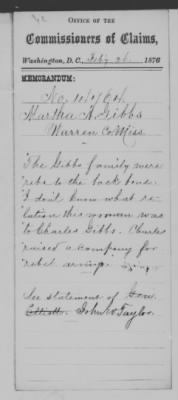 OFFICE OF THE
Commissioners of Claims,
Washington, D.C., Feby 26, 1876
MEMORANDUM:
No.
Martha A. Gibbs
Warren Co Miss.
The Gibbs family were
rebs to the back bone.
I don't know what re-
lation this woman was
to Charles Gibbs. Charles
raised a company for
rebel army
See statement of Geo. W.
Elliott. John W Taylor.